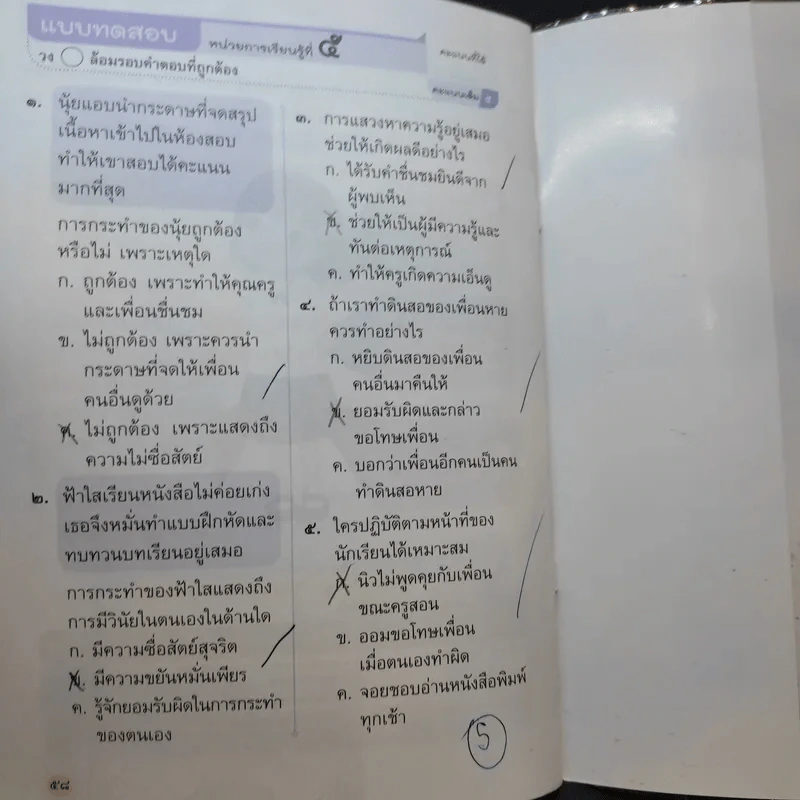 แบบทดสอบ หน่วยการเรียนรู้ที่ ๕
คะแนนที่ได้
วง ล้อมรอบคำตอบที่ถูกต้อง
คะแนนเต็ม ๕
๑. นุ้ยแอบนำกระดาษที่จดสรุป
เนื้อหาเข้าไปในห้องสอบ
ทำให้เขาสอบได้คะแนน
มากที่สุด
การกระทำของนุ้ยถูกต้อง
หรือไม่ เพราะเหตุใด
ก. ถูกต้อง เพราะทำให้คุณครู
และเพื่อนชื่นชม
ข. ไม่ถูกต้อง เพราะควรนำ
กระดาษที่จดให้เพื่อน
คนอื่นดูด้วย
ค. ไม่ถูกต้อง เพราะแสดงถึง
ความไม่ซื่อสัตย์
๒. ฟ้าใสเรียนหนังสือไม่ค่อยเก่ง
เธอจึงหมั่นทำแบบฝึกหัดและ
ทบทวนบทเรียนอยู่เสมอ
การกระทำของฟ้าใสแสดงถึง
การมีวินัยในตนเองในด้านใด
ก. มีความซื่อสัตย์สุจริต
ข. มีความขยันหมั่นเพียร
ค. รู้จักยอมรับผิดในการกระทำ
ของตนเอง
๓. การแสวงหาความรู้อยู่เสมอ
ช่วยให้เกิดผลดีอย่างไร
ก. ได้รับคำชื่นชมยินดีจาก
ผู้พบเห็น
ข. ช่วยให้เป็นผู้มีความรู้และ
ทันต่อเหตุการณ์
ค. ทำให้ครูเกิดความเอ็นดู
๔. ถ้าเราทำดินสอของเพื่อนหาย
ควรทำอย่างไร
ก. หยิบดินสอของเพื่อน
คนอื่นมาคืนให้
ข. ยอมรับผิดและกล่าว
ขอโทษเพื่อน
ค. บอกว่าเพื่อนอีกคนเป็นคน
ทำดินสอหาย
๕. ใครปฏิบัติตามหน้าที่ของ
นักเรียนได้เหมาะสม
ก. นิวไม่พูดคุยกับเพื่อน
ขณะครูสอน
ข. ออมขอโทษเพื่อน
เมื่อตนเองทำผิด
ค. จอยชอบอ่านหนังสือพิมพ์
ทุกเช้า
5
๕๘